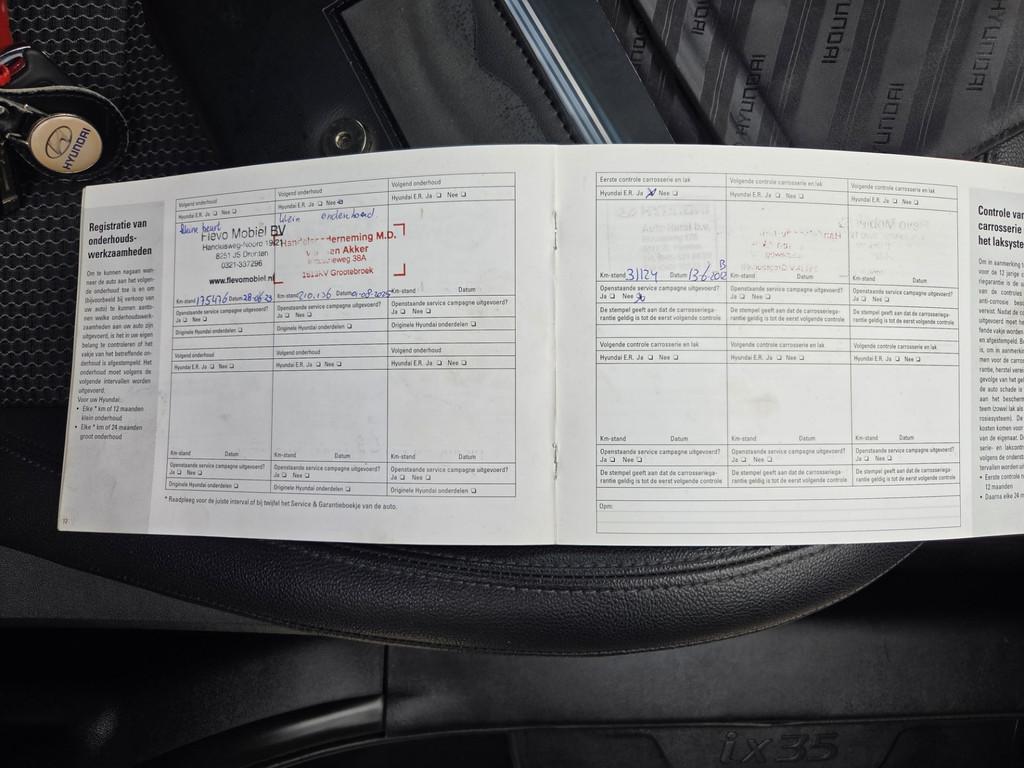 HYUNDAI
HYUNDAI
HYUNDAI
HYUNDAI
HYUNDAI
Registratie van
onderhouds-
werkzaamheden
Om te kunnen nagaan wan-
neer de auto aan het volgen-
de onderhoud toe is en om
(bijvoorbeeld bij verkoop van
uw auto) te kunnen aanto-
nen welke onderhoudswerk-
zaamheden aan uw auto zijn
uitgevoerd, is het in uw eigen
belang te controleren of het
vakje van het betreffende on-
derhoud is afgestempeld. Het
onderhoud moet volgens de
volgende intervallen worden
uitgevoerd.
Voor uw Hyundai:
• Elke * km of 12 maanden
klein onderhoud
• Elke * km of 24 maanden
groot onderhoud
12
Volgend onderhoud
Hyundai E.R. Ja ❑ Nee ❑
kleine beurt
Flevo Mobiel BV
Handelsweg-Noord 19-21
8251 JS Dronten
0321-337296
www.flevomobiel.nl
Km-stand 175476 Datum 28-06-23
Openstaande service campagne uitgevoerd?
Ja ❑ Nee ❑
Originele Hyundai onderdelen ❑
Volgend onderhoud
Hyundai E.R. Ja ❑ Nee ❑
klein onderhoud
Handelsonderneming M.D.
van den Akker
38A
Grootebroek
Km-stand 210.136 Datum 01-08-2025
Openstaande service campagne uitgevoerd?
Ja ❑ Nee ❑
Originele Hyundai onderdelen ❑
Volgend onderhoud
Hyundai E.R. Ja ❑ Nee ❑
Km-stand Datum
Openstaande service campagne uitgevoerd?
Ja ❑ Nee ❑
Originele Hyundai onderdelen ❑
Volgend onderhoud
Hyundai E.R. Ja ❑ Nee ❑
Km-stand Datum
Openstaande service campagne uitgevoerd?
Ja ❑ Nee ❑
Originele Hyundai onderdelen ❑
Volgend onderhoud
Hyundai E.R. Ja ❑ Nee ❑
Km-stand Datum
Openstaande service campagne uitgevoerd?
Ja ❑ Nee ❑
Originele Hyundai onderdelen ❑
Volgend onderhoud
Hyundai E.R. Ja ❑ Nee ❑
Km-stand Datum
Openstaande service campagne uitgevoerd?
Ja ❑ Nee ❑
Originele Hyundai onderdelen ❑
* Raadpleeg voor de juiste interval of bij twijfel het Service & Garantieboekje van de auto.
Eerste controle carrosserie en lak
Hyundai E.R. Ja ❑ Nee ❑
Km-stand 31124 Datum 13-6-2013
Openstaande service campagne uitgevoerd?
Ja ❑ Nee ❑
De stempel geeft aan dat de carrosseriega-
rantie geldig is tot de eerst volgende controle
Volgende controle carrosserie en lak
Hyundai E.R. Ja ❑ Nee ❑
Km-stand Datum
Openstaande service campagne uitgevoerd?
Ja ❑ Nee ❑
De stempel geeft aan dat de carrosseriega-
rantie geldig is tot de eerst volgende controle
Volgende controle carrosserie en lak
Hyundai E.R. Ja ❑ Nee ❑
Km-stand Datum
Openstaande service campagne uitgevoerd?
Ja ❑ Nee ❑
De stempel geeft aan dat de carrosseriega-
rantie geldig is tot de eerst volgende controle
Volgende controle carrosserie en lak
Hyundai E.R. Ja ❑ Nee ❑
Km-stand Datum
Openstaande service campagne uitgevoerd?
Ja ❑ Nee ❑
De stempel geeft aan dat de carrosseriega-
rantie geldig is tot de eerst volgende controle
Volgende controle carrosserie en lak
Hyundai E.R. Ja ❑ Nee ❑
Km-stand Datum
Openstaande service campagne uitgevoerd?
Ja ❑ Nee ❑
De stempel geeft aan dat de carrosseriega-
rantie geldig is tot de eerst volgende controle
Volgende controle carrosserie en lak
Hyundai E.R. Ja ❑ Nee ❑
Km-stand Datum
Openstaande service campagne uitgevoerd?
Ja ❑ Nee ❑
De stempel geeft aan dat de carrosseriega-
rantie geldig is tot de eerst volgende controle
Opm:
Controle van
carrosserie
het laksyste
Om in aanmerking
voor de 12 jarige
riegarantie is de
van de controles
anti-corrosie
vereist. Nadat de
uitgevoerd moet het
fende vakje worden
en afgestempeld.
is, om in aanmerking
men voor de carros
rantie, herstel verei
gevolge van het gel
de auto schade is
aan het bescherm
teem (zowel lak als
rosiesysteem). De
kosten komen voor
van de eigenaar. De
serie- en lakcontrole
volgens de onderst
tervallen worden uit
• Eerste controle
12 maanden
• Daarna elke 24
ix35